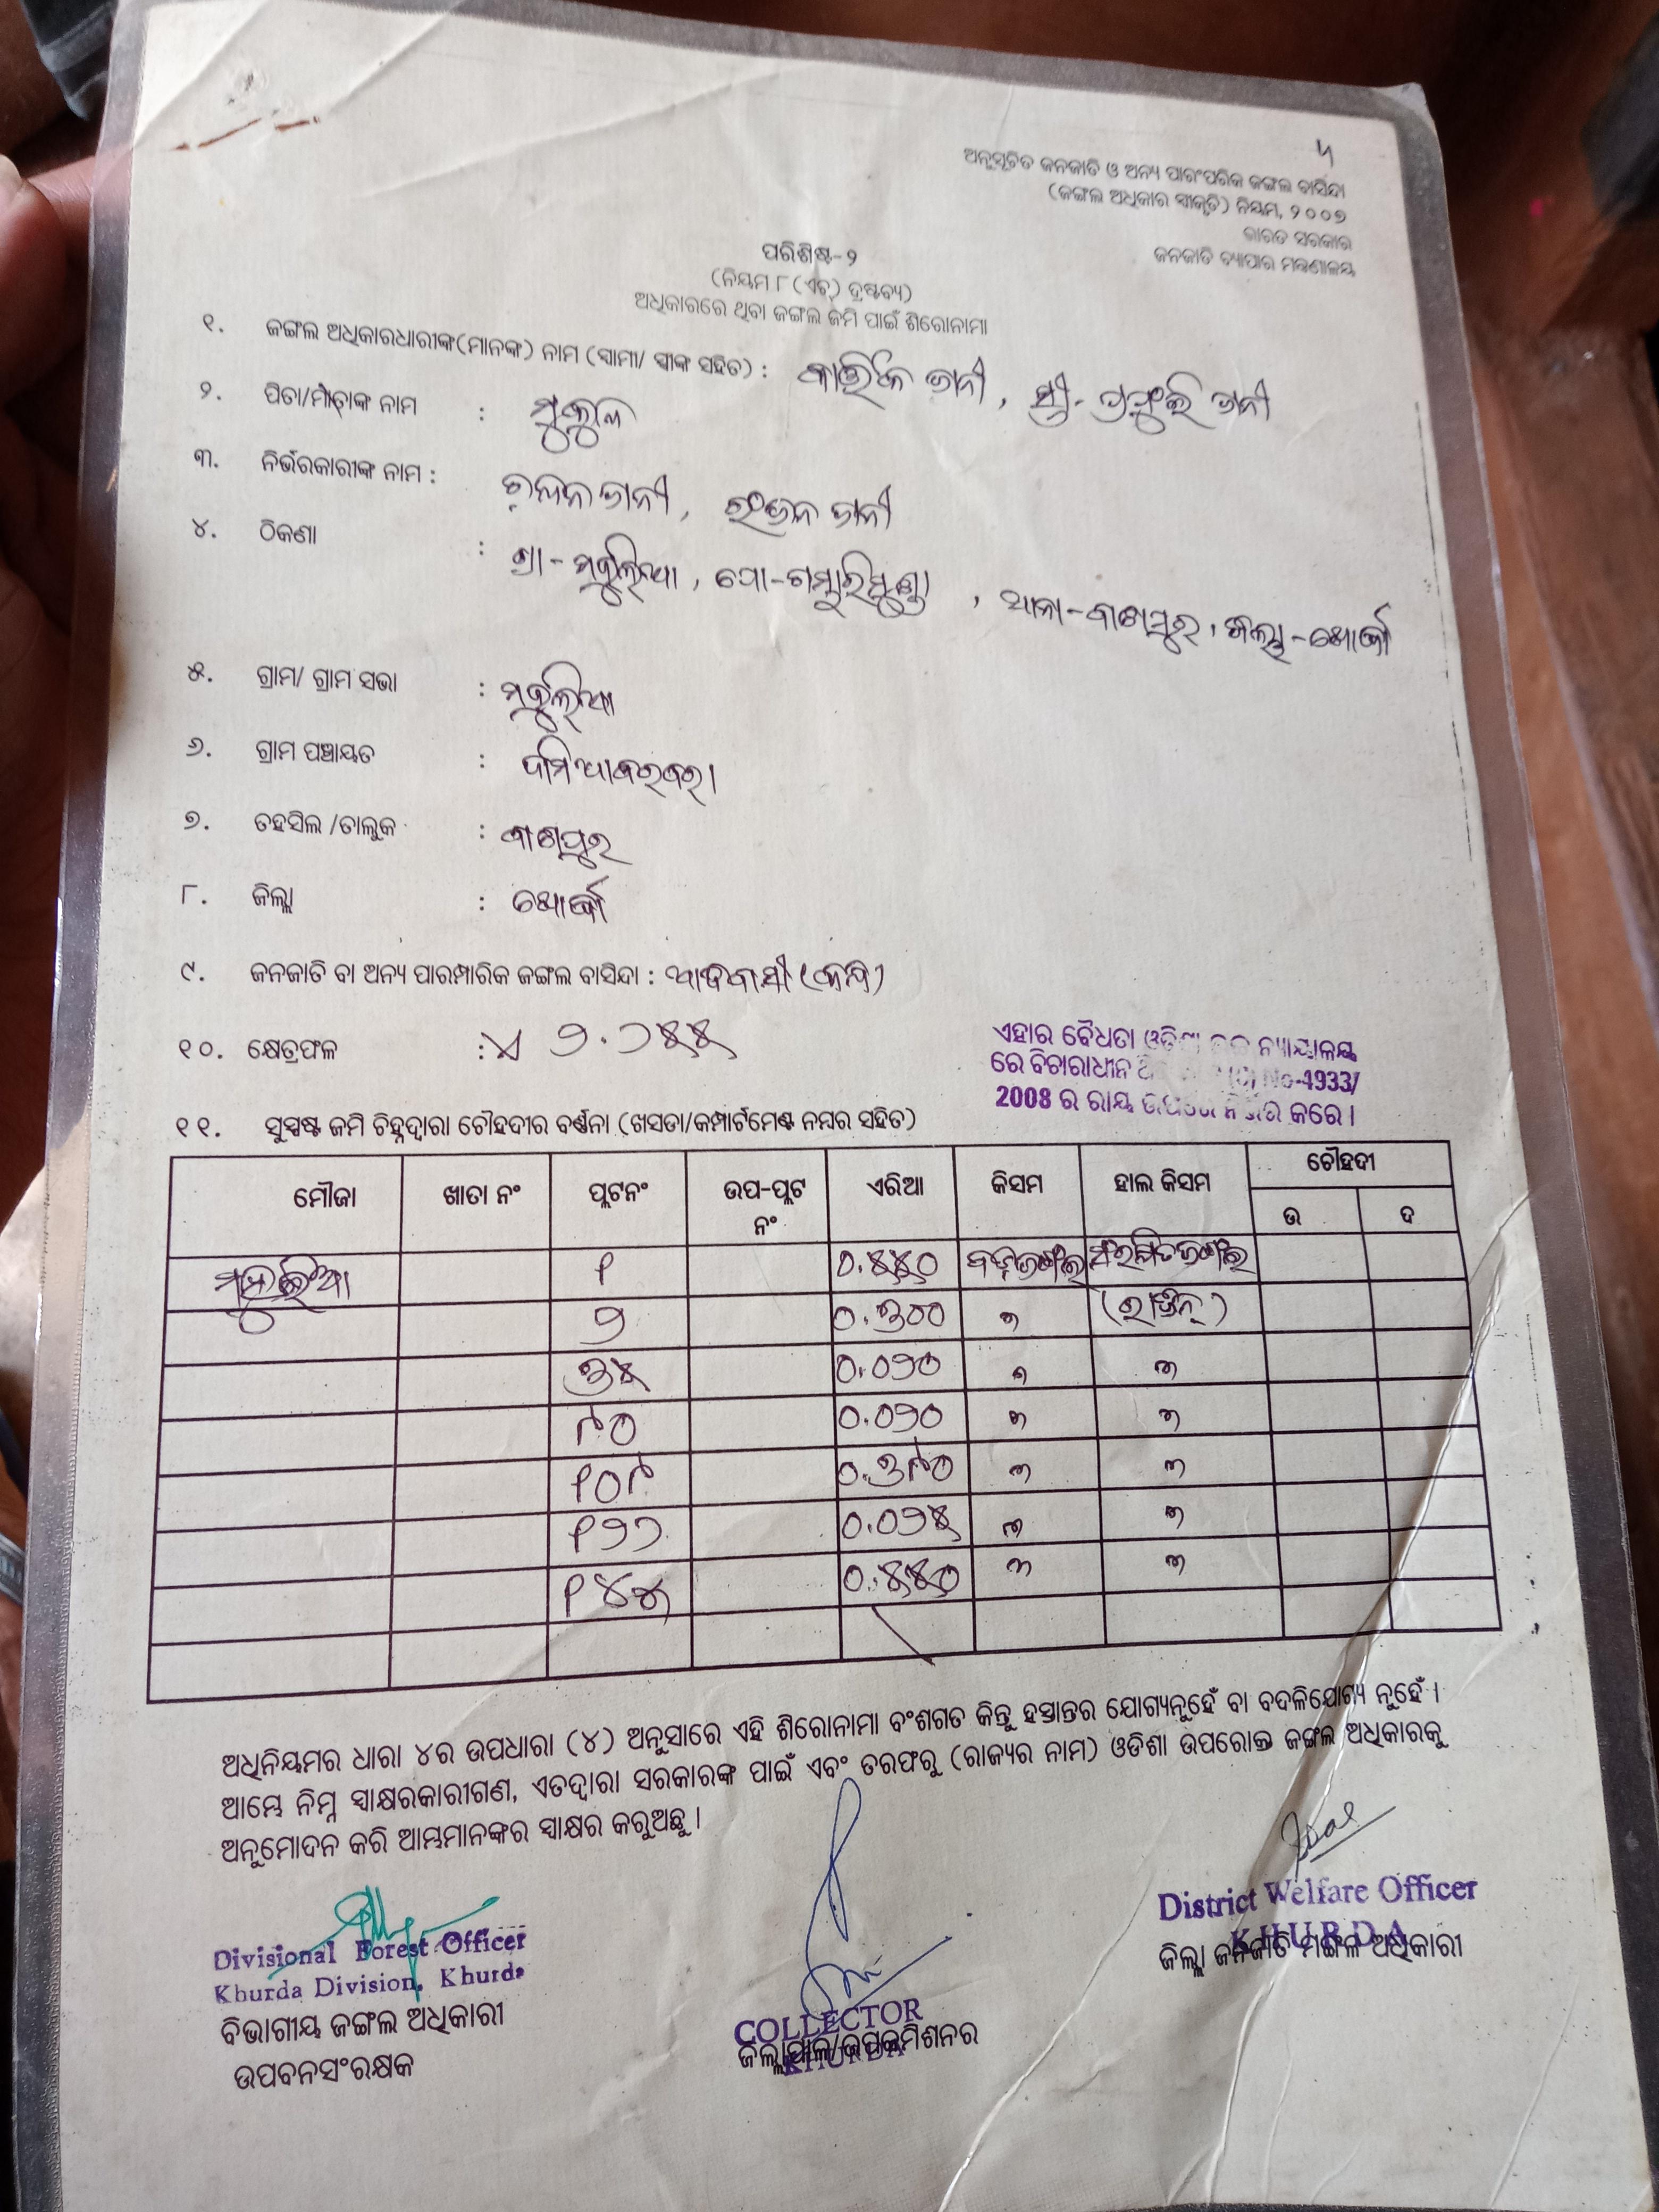 ୳
ଅନୁସୂଚିତ ଜନଜାତି ଓ ଅନ୍ୟ ପାରଂପରିକ ଜଙ୍ଗଲ ବାସିନ୍ଦା
(ଜଙ୍ଗଲ ଅଧିକାର ସ୍ୱୀକୃତି) ନିୟମ, ୨୦୦୭
ଭାରତ ସରକାର
ଜନଜାତି ବ୍ୟାପାର ମନ୍ତ୍ରଣାଳୟ
ପରିଶିଷ୍ଟ-୨
(ନିୟମ ୮ (ଏଚ୍) ଦ୍ରଷ୍ଟବ୍ୟ)
ଅଧିକାରରେ ଥିବା ଜଙ୍ଗଲ ଜମି ପାଇଁ ଶିରୋନାମା
୧. ଜଙ୍ଗଲ ଅଧିକାରଧାରୀଙ୍କ(ମାନଙ୍କ) ନାମ (ସ୍ୱାମୀ/ ସ୍ତ୍ରୀଙ୍କ ସହିତ) : କାର୍ତ୍ତିକ ଜାନୀ, ସ୍ତ୍ରୀ- ଜାନୀ
୨. ପିତା/ମାତାଙ୍କ ନାମ : ମୁକୁନ୍ଦ
୩. ନିର୍ଭରକାରୀଙ୍କ ନାମ : ଜାନୀ, ଜାନୀ
୪. ଠିକଣା : ଗ୍ରା- , ପୋ-ଗମ୍ଭାରିମୁଣ୍ଡା, ଥାନା-ବାଣପୁର, ଜିଲ୍ଲା-ଖୋର୍ଦ୍ଧା
୫. ଗ୍ରାମ/ ଗ୍ରାମ ସଭା :
୬. ଗ୍ରାମ ପଞ୍ଚାୟତ :
୭. ତହସିଲ /ତାଲୁକ : ବାଣପୁର
୮. ଜିଲ୍ଲା : ଖୋର୍ଦ୍ଧା
୯. ଜନଜାତି ବା ଅନ୍ୟ ପାରମ୍ପାରିକ ଜଙ୍ଗଲ ବାସିନ୍ଦା : ଆଦିବାସୀ (କନ୍ଧ)
୧୦. କ୍ଷେତ୍ରଫଳ : ୨.୨୫୫
ଏହାର ବୈଧତା ଓଡ଼ିଶା ନ୍ୟାୟାଳୟ
ରେ ବିଚାରାଧୀନ No-4933/
2008 ର ରାୟ ଉପରେ ନିର୍ଭର କରେ ।
୧୧. ସୁସ୍ପଷ୍ଟ ଜମି ଚିହ୍ନଦ୍ୱାରା ଚୌହଦୀର ବର୍ଣ୍ଣନା (ଖସଡା/କମ୍ପାର୍ଟମେଣ୍ଟ ନମ୍ବର ସହିତ)
ମୌଜା ଖାତା ନଂ ପ୍ଲଟନଂ ଉପ-ପ୍ଲଟ ନଂ ଏରିଆ କିସମ ହାଲ କିସମ ଚୌହଦୀ
ଉ ଦ
୧ ୦.୫୫୦
୨ ୦.୩୦୦
୩୫ ୦.୦୨୦
୯୦ ୦.୦୨୦
୧୦୯ ୦.୩୯୦
୧୨୨ ୦.୦୨୫
୧୪୪ ୦.୫୫୦
ଅଧିନିୟମର ଧାରା ୪ର ଉପଧାରା (୪) ଅନୁସାରେ ଏହି ଶିରୋନାମା ବଂଶଗତ କିନ୍ତୁ ହସ୍ତାନ୍ତର ଯୋଗ୍ୟନୁହେଁ ବା ବଦଳିଯୋଗ୍ୟ ନୁହେଁ ।
ଆମ୍ଭେ ନିମ୍ନ ସ୍ୱାକ୍ଷରକାରୀଗଣ, ଏତଦ୍ୱାରା ସରକାରଙ୍କ ପାଇଁ ଏବଂ ତରଫରୁ (ରାଜ୍ୟର ନାମ) ଓଡିଶା ଉପରୋକ୍ତ ଜଙ୍ଗଲ ଅଧିକାରକୁ
ଅନୁମୋଦନ କରି ଆମ୍ଭମାନଙ୍କର ସ୍ୱାକ୍ଷର କରୁଅଛୁ ।
Divisional Forest Officer
Khurda Division, Khurda
ବିଭାଗୀୟ ଜଙ୍ଗଲ ଅଧିକାରୀ
ଉପବନସଂରକ୍ଷକ
COLLECTOR
KHURDA
ଜିଲ୍ଲାପାଳ/ଉପକମିଶନର
District Welfare Officer
KHURDA
ଜିଲ୍ଲା ଜନଜାତି ମଙ୍ଗଳ ଅଧିକାରୀ